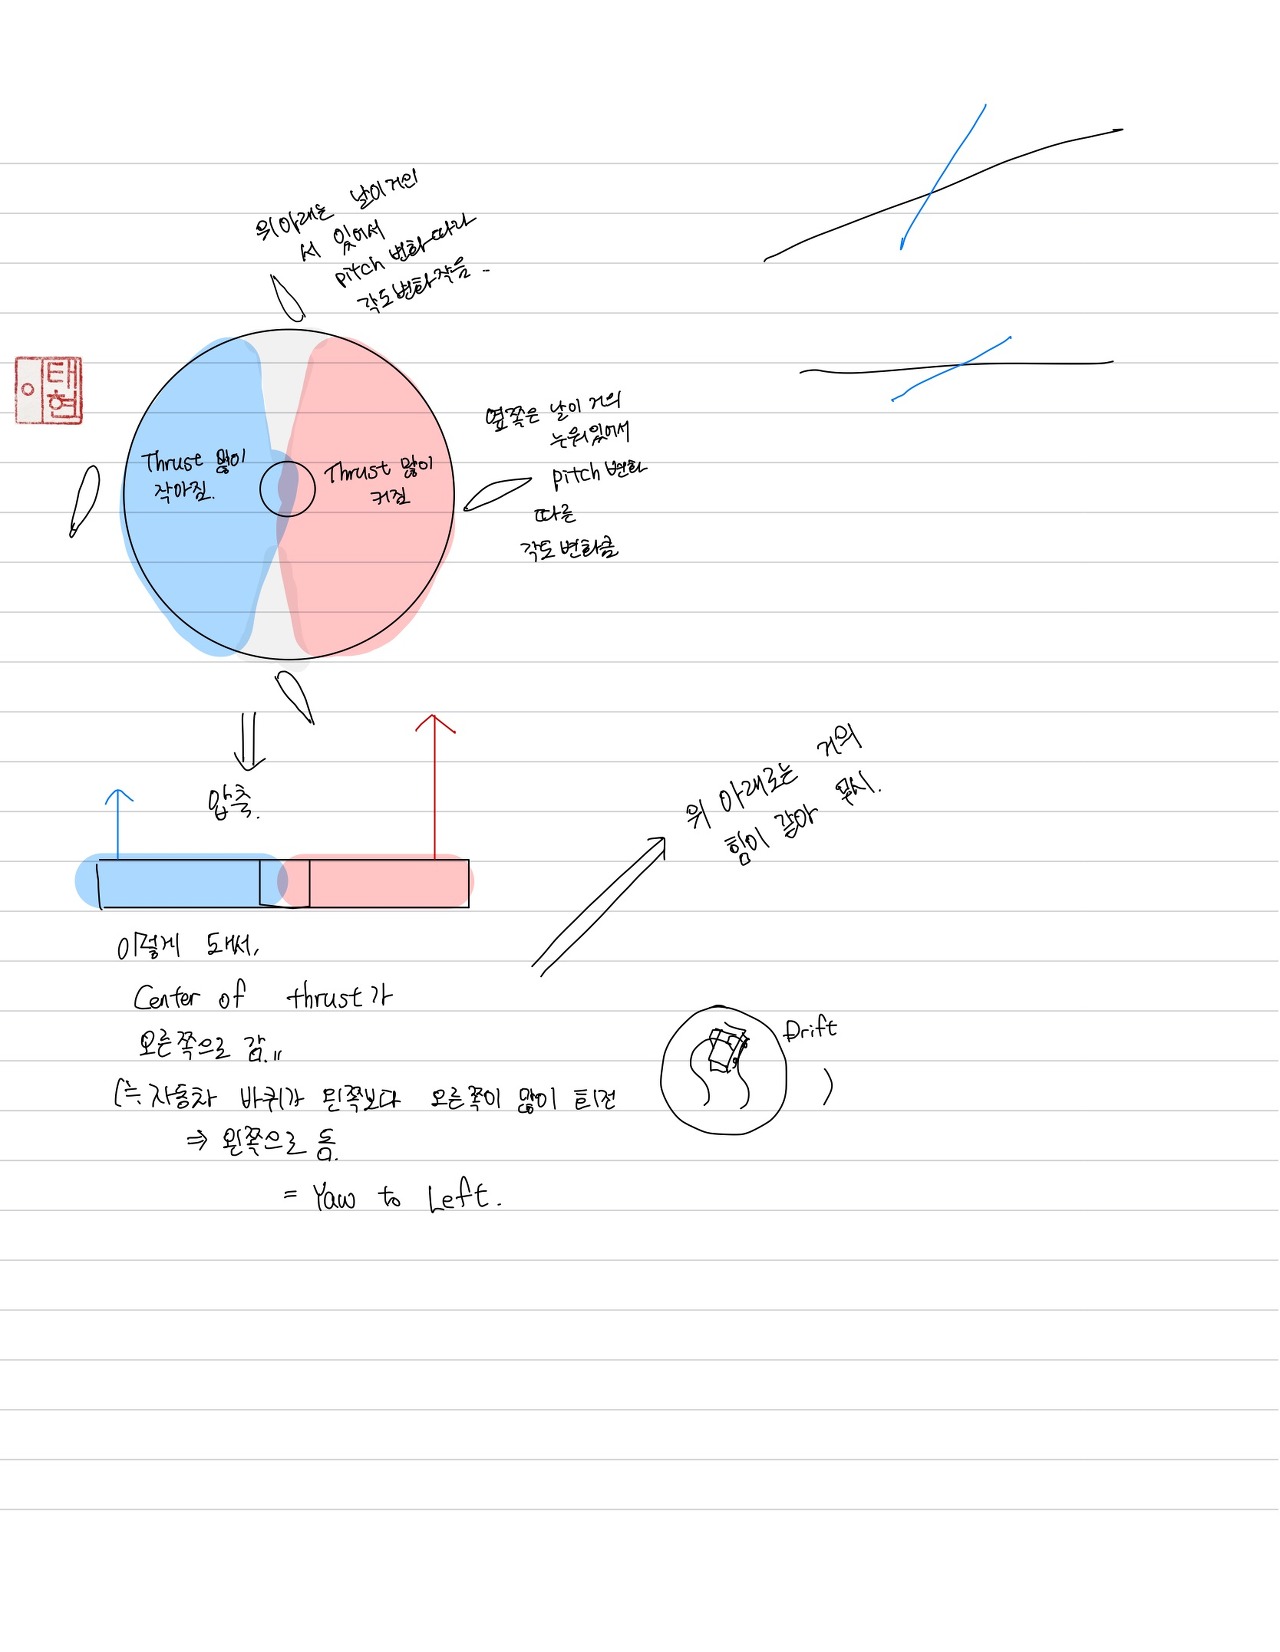 위아래는 날이거의
서 있어서
pitch 변화 따라
각도변화작음.
태
이현
옆쪽은 날이 거의
누워있어서
pitch 변화
따른
각도변화큼
Thrust 많이
작아짐.
Thrust 많이
커짐
압축.
위 아래로는 거의
힘이 같아 무시.
이렇게 돼서,
Center of thrust가
오른쪽으로 감.
(≒자동차 바퀴가 왼쪽보다 오른쪽이 많이 회전
⇒ 왼쪽으로 돔.
= Yaw to Left.
Drift
)